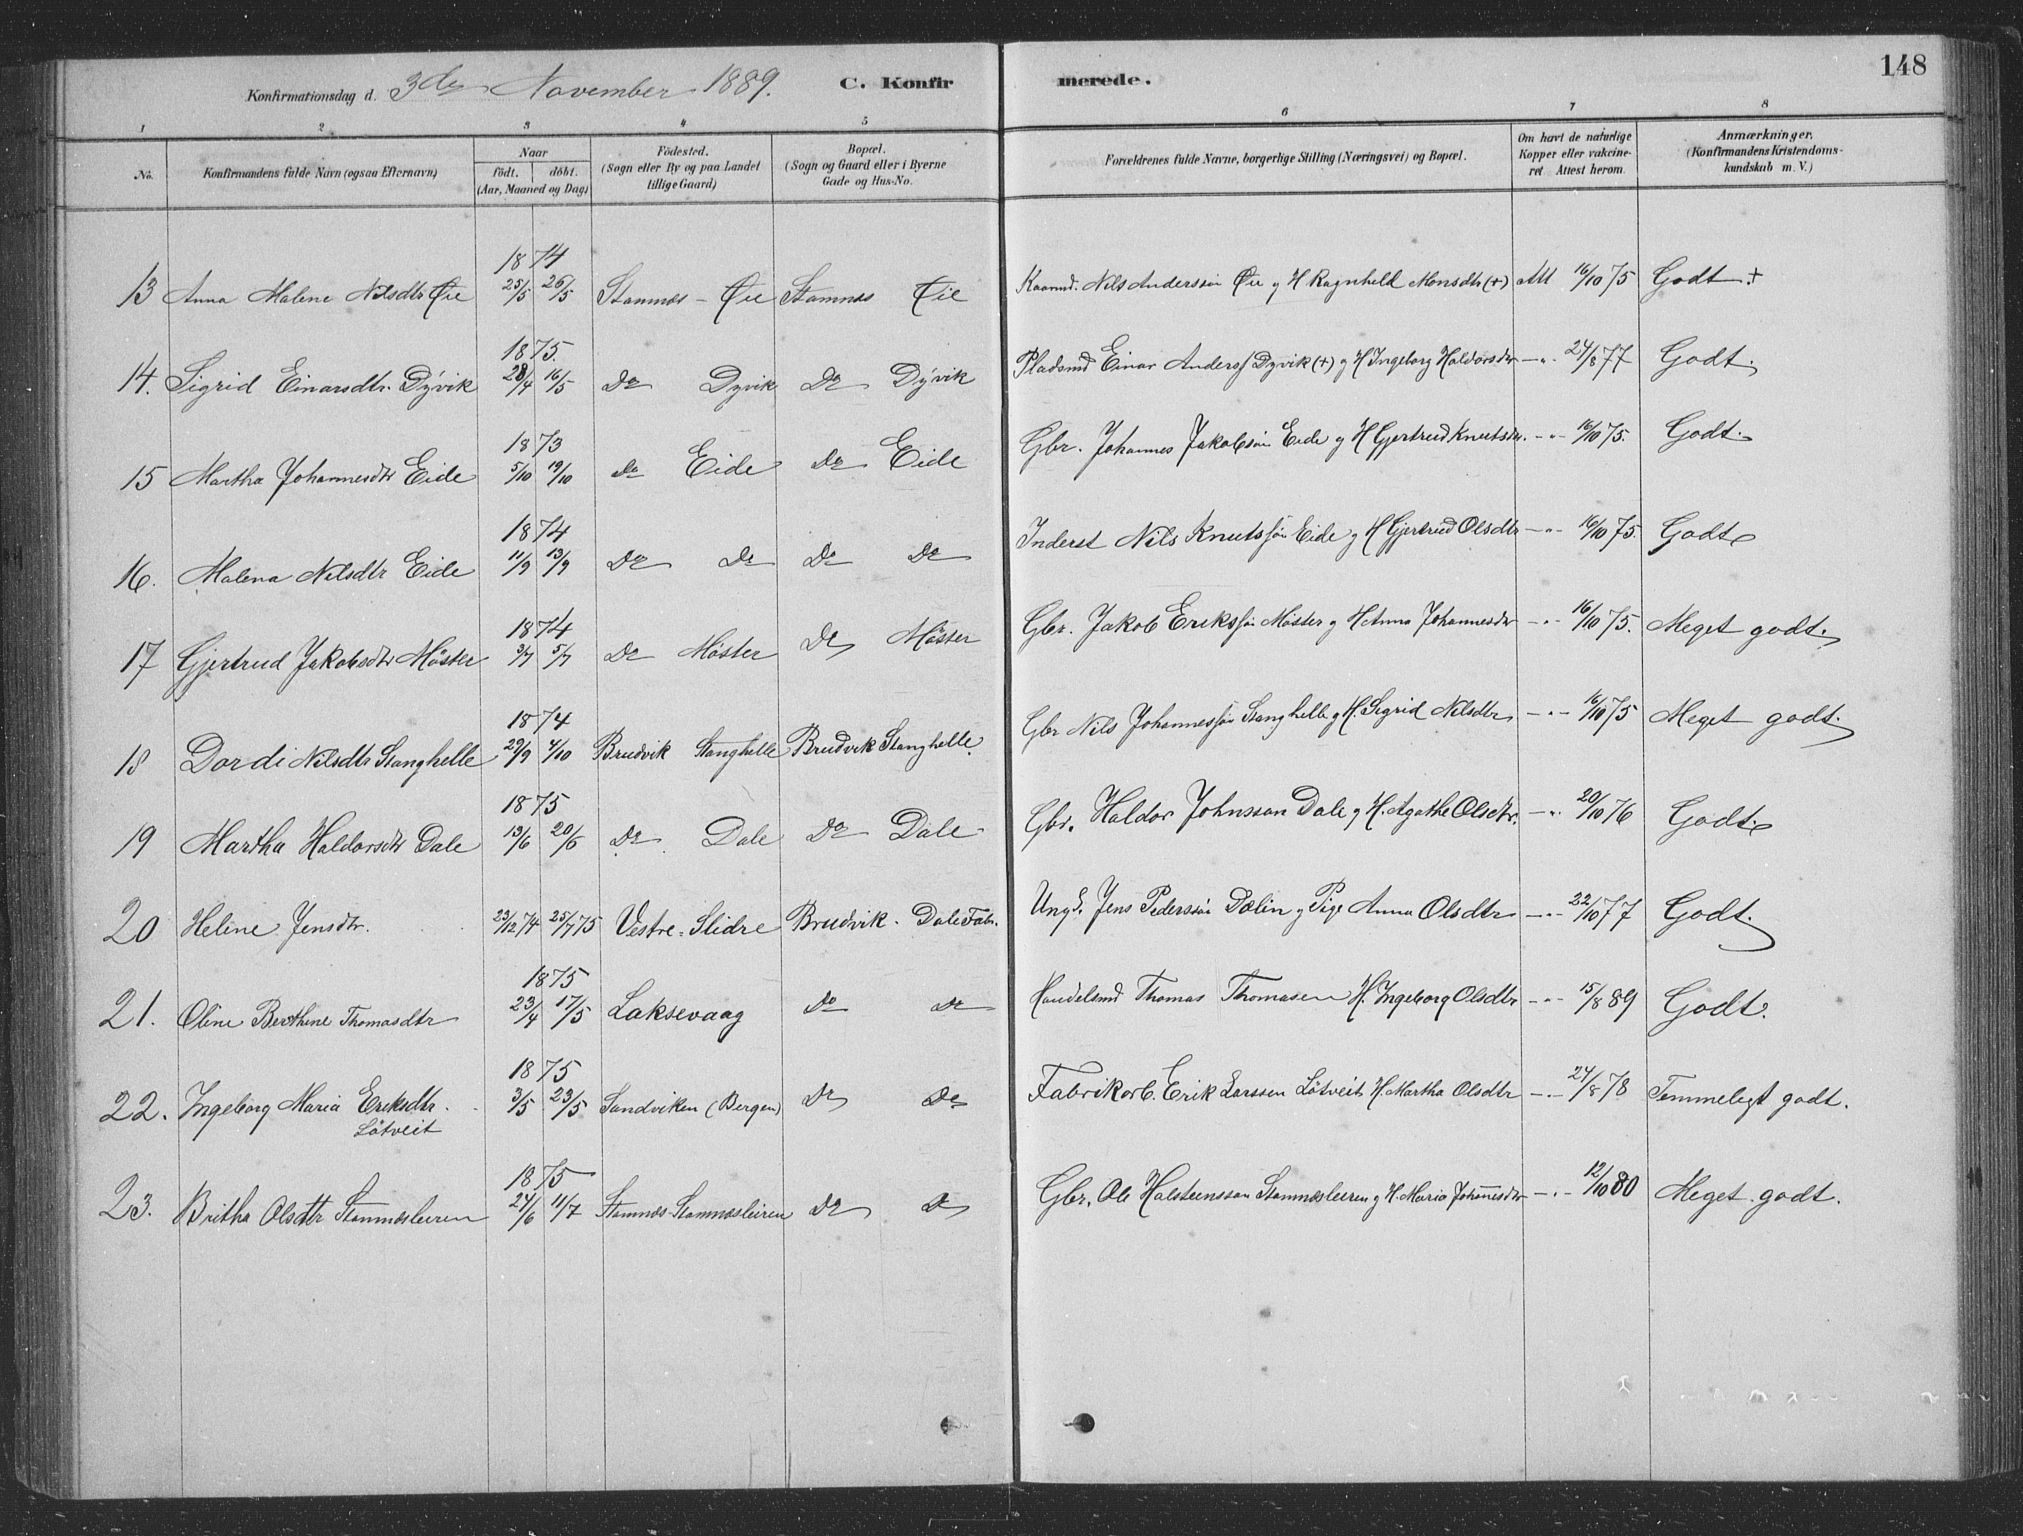 148
Konfirmationsdag d. 3die November 1889. C. Konfirmerede.
1 2 3 4 5 6 7 8
No. Konfirmandens fulde Navn (ogsaa Efternavn) Naar født. døbt. (Aar, Maaned og Dag) Fødested. (Sogn eller By og paa Landet tillige Gaard) Bopæl. (Sogn og Gaard eller i Byerne Gade og Hus-No. Forældrenes fulde Navne, borgerlige Stilling (Næringsvei) og Bopæl. Om havt de naturlige Kopper eller vakcineret Attest herom. Anmærkninger. (Konfirmandens Kristendomskundskab m. V.)
1874
13 Anna Malene Nilsdtr Øie 25/5 26/5 Stamnæs - Øie Stamnæs Øie Kaarmd. Nils Anderssøn Øie g H Ragnheld Monsdtr (+) Att 16/10 75 Godt +
1875.
14. Sigrid Einarsdtr. Dyvik 28/4 16/5 Do Dyvik Do Dyvik Pladsmd Einar Anderss Dyvik (+) g H Ingeborg Haldorsdtr -"- 24/8 77 Godt.
1873
15 Martha Johannesdtr Eide 5/10 19/10 do Eide Do Eide Gbr. Johannes Jakobsøn Eide g H Gjertrud Knutsdr. -"- 16/10 75. Godt.
1874
16. Malena Nilsdtr Eide 11/9 13/9 Do Do Do Do Inderst Nils Knutssøn Eide g H Gjertrud Olsdtr -"- 16/10 75. Godt
1874
17 Gjertrud Jakobsdtr Møster 3/7 5/7 Do Møster Do Møster Gbr. Jakob Erikssøn Møster g H Anna Johannesdtr -"- 16/10 75. Meget godt.
1874
18 Dordi Nilsdtr Stanghelle 29/9 4/10 Brudvik Stanghelle Brudvik Stanghelle. Gbr Nils Johannessøn Stanghelle g H. Sigrid Nilsdtr -"- 16/10 75 Meget godt.
1875
19 Martha Haldorsdtr Dale 13/6 20/6 Do Dale Do Dale Gbr. Haldor Johnsson Dale g H. Agathe Olsdtr. -"- 20/10 76 Godt.
20 Heline Jensdtr. 23/12 74 25/7 75 Vestre-Slidre Brudvik - Dale Fabr. Ungk. Jens Pederssøn Dælin g Pige Anna Olsdtr -"- 22/10 77 Godt.
1875
21. Oline Berthine Thomasdtr 23/4 17/5 Laksevaag Do Do Handelsmd Thomas Thomasen H. Ingeborg Olsdtr -"- 15/8 89 Godt.
1875
22. Ingeborg Maria Eriksdtr. 3/5 23/5 Sandviken (Bergen) Do Do Fabrikarb. Erik Larssen Løtveit H. Martha Olsdtr -"- 24/8 78 Temmeligt godt.
Løtveit
1875
23. Britha Olsdtr Stamnæsleiren 24/6 11/7 Stamnæs Stamnæsleiren Do Do Gbr. Ole Halsteensson Stamnæsleiren g H. Maria Johannesdtr -"- 12/10 80 Meget godt.